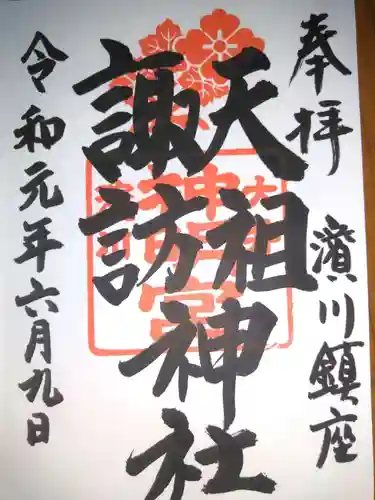 奉拝
濱川鎮座
天祖
諏訪
神社
令和元年六月九日